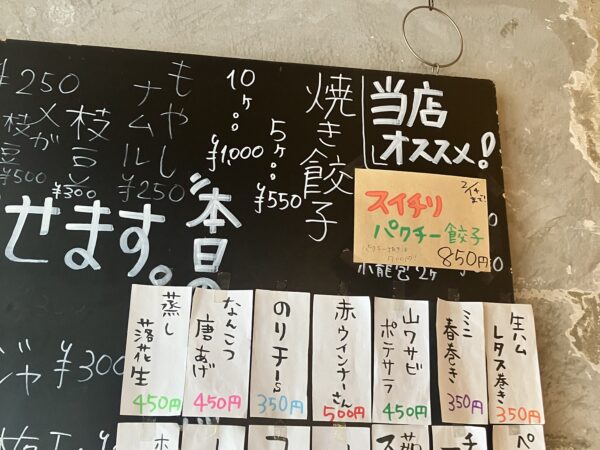 当店
オススメ!
焼き餃子
10ヶ:¥1,000
5ヶ:¥550
スイチリ
パクチー餃子
850円
2/14まで!
小龍包 2ヶ
もやし
ナムル
¥250
枝豆
¥300
¥500
¥250
本日の
せます。
ジャ ¥300
生ハム
レタス巻き
350円
ミニ
春巻き
350円
山ワサビ
ポテサラ
450円
赤ウインナーさん
500円
のりチーs
350円
なんこつ
唐あげ
450円
蒸し
落花生
450円